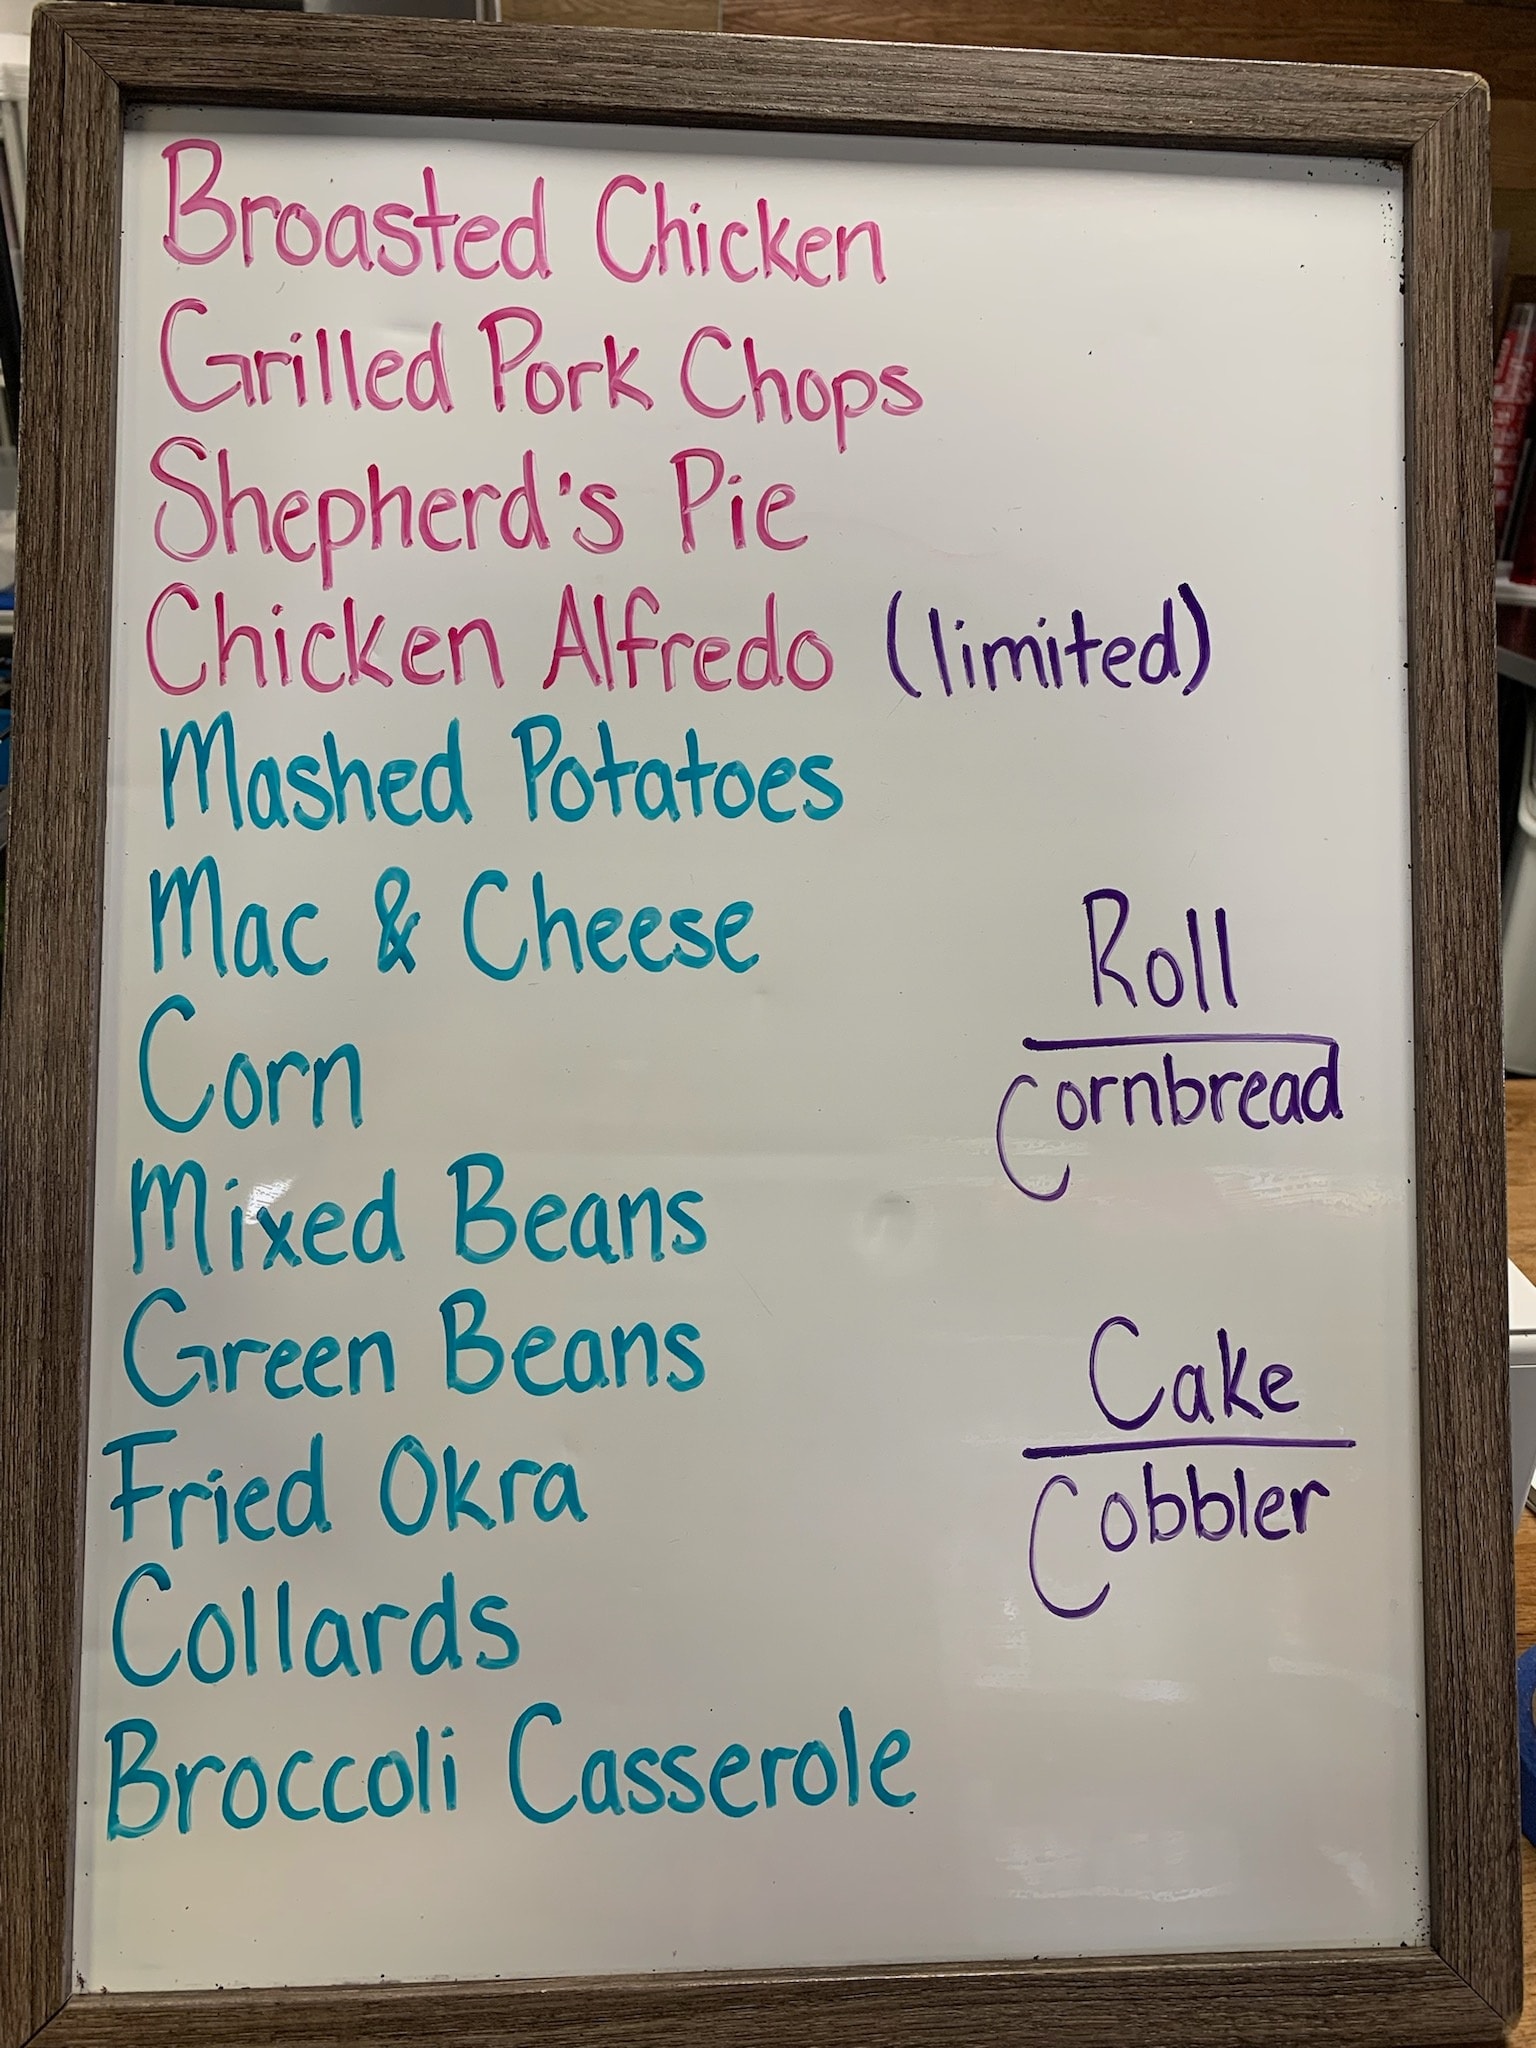 Broasted Chicken
Grilled Pork Chops
Shepherd's Pie
Chicken Alfredo (limited)
Mashed Potatoes
Mac & Cheese
Corn
Mixed Beans
Green Beans
Fried Okra
Collards
Broccoli Casserole
Roll
Cornbread
Cake
Cobbler